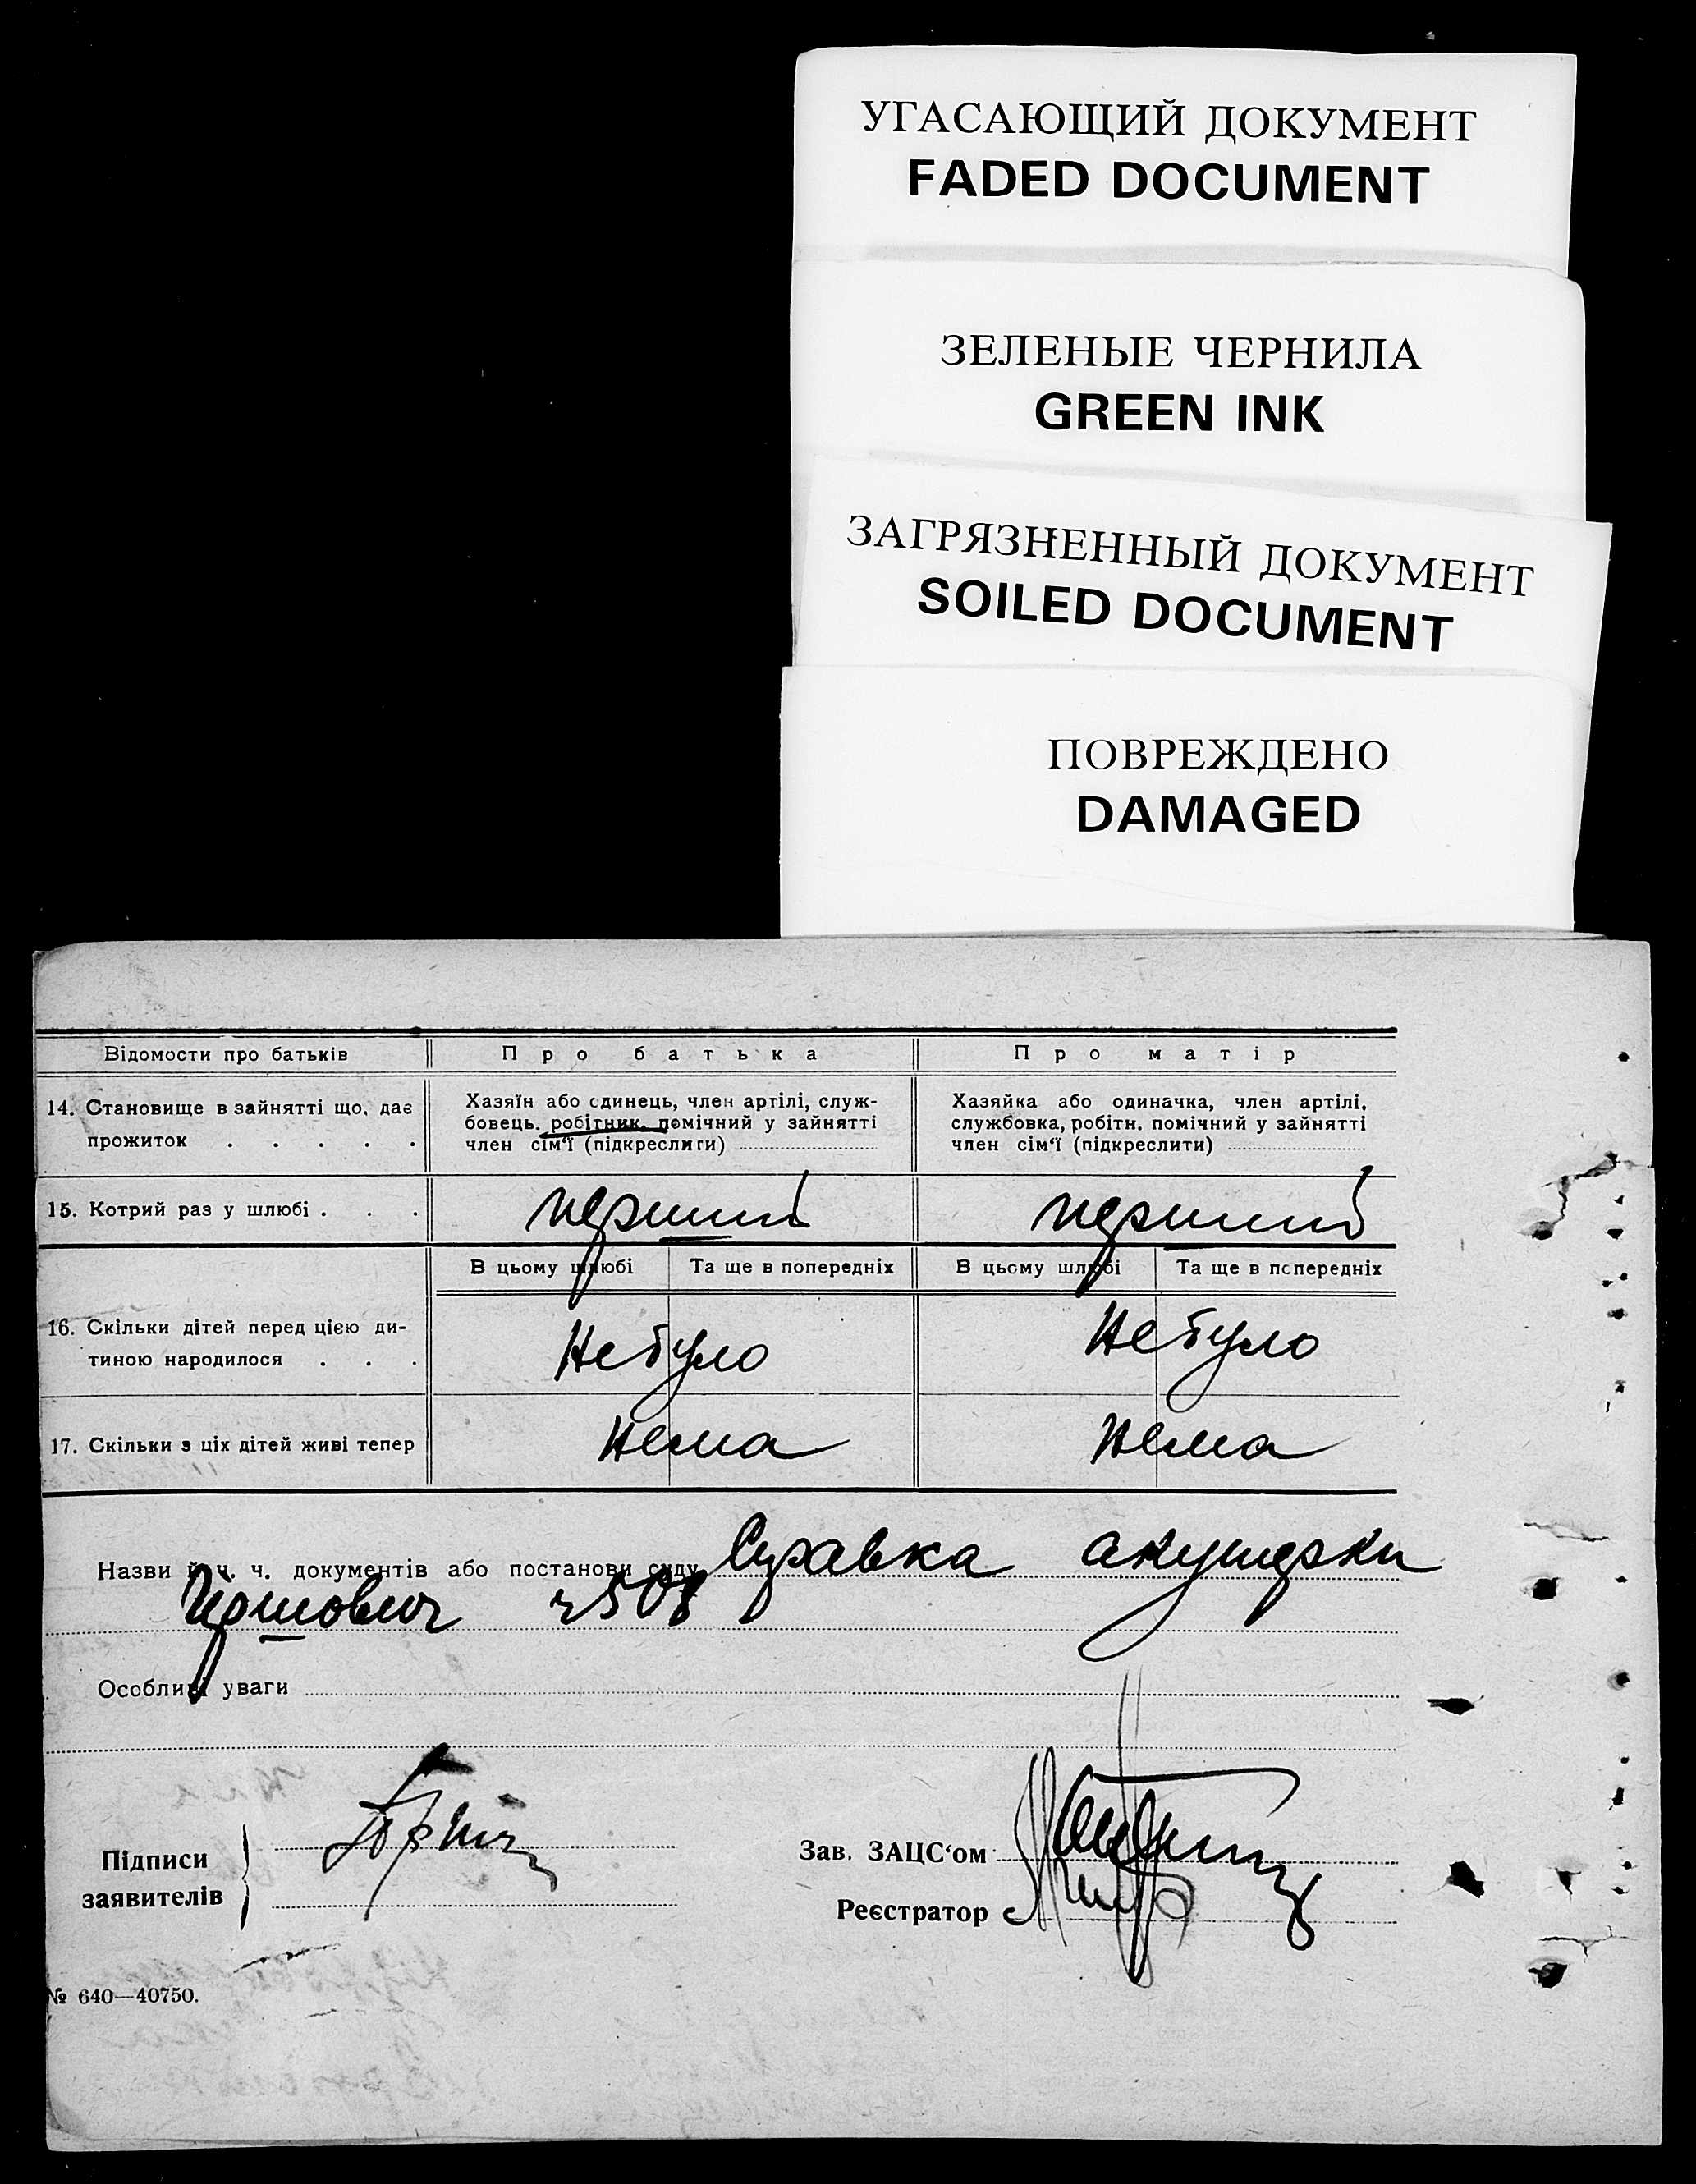 УГАСАЮЩИЙ ДОКУМЕНТ
FADED DOCUMENT
ЗЕЛЕНЫЕ ЧЕРНИЛА
GREEN INK
ЗАГРЯЗНЕННЫЙ ДОКУМЕНТ
SOILED DOCUMENT
ПОВРЕЖДЕНО
DAMAGED
Відомости про батьків Про батька Про матір
14. Становище в зайнятті що, дає прожиток . . . . .
Хазяїн або одинець, член артілі, служ-
бовець. робітник. помічний у зайнятті
член сім'ї (підкреслити)
Хазяйка або одиначка, член артілі,
службовка, робітн. помічний у зайнятті
член сім'ї (підкреслити)
15. Котрий раз у шлюбі . . . перший перший
В цьому шлюбі Та ще в попередніх В цьому шлюбі Та ще в попередніх
16. Скільки дітей перед цією ди-
тиною народилося . . . Не було Не було
17. Скільки з ціх дітей живі тепер Нема Нема
Назви й ч. ч. документів або постанови суду Справка акушерки
508
Особливі уваги
Підписи
заявителів
Зав. ЗАЦС'ом
Реєстратор
№ 640—40750.